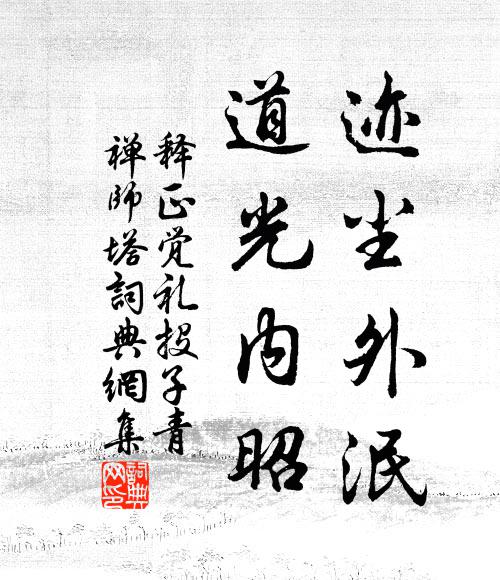 迹尘外泯
道光内昭
释正觉礼投子青
禅师塔詞典網集
詞典网印